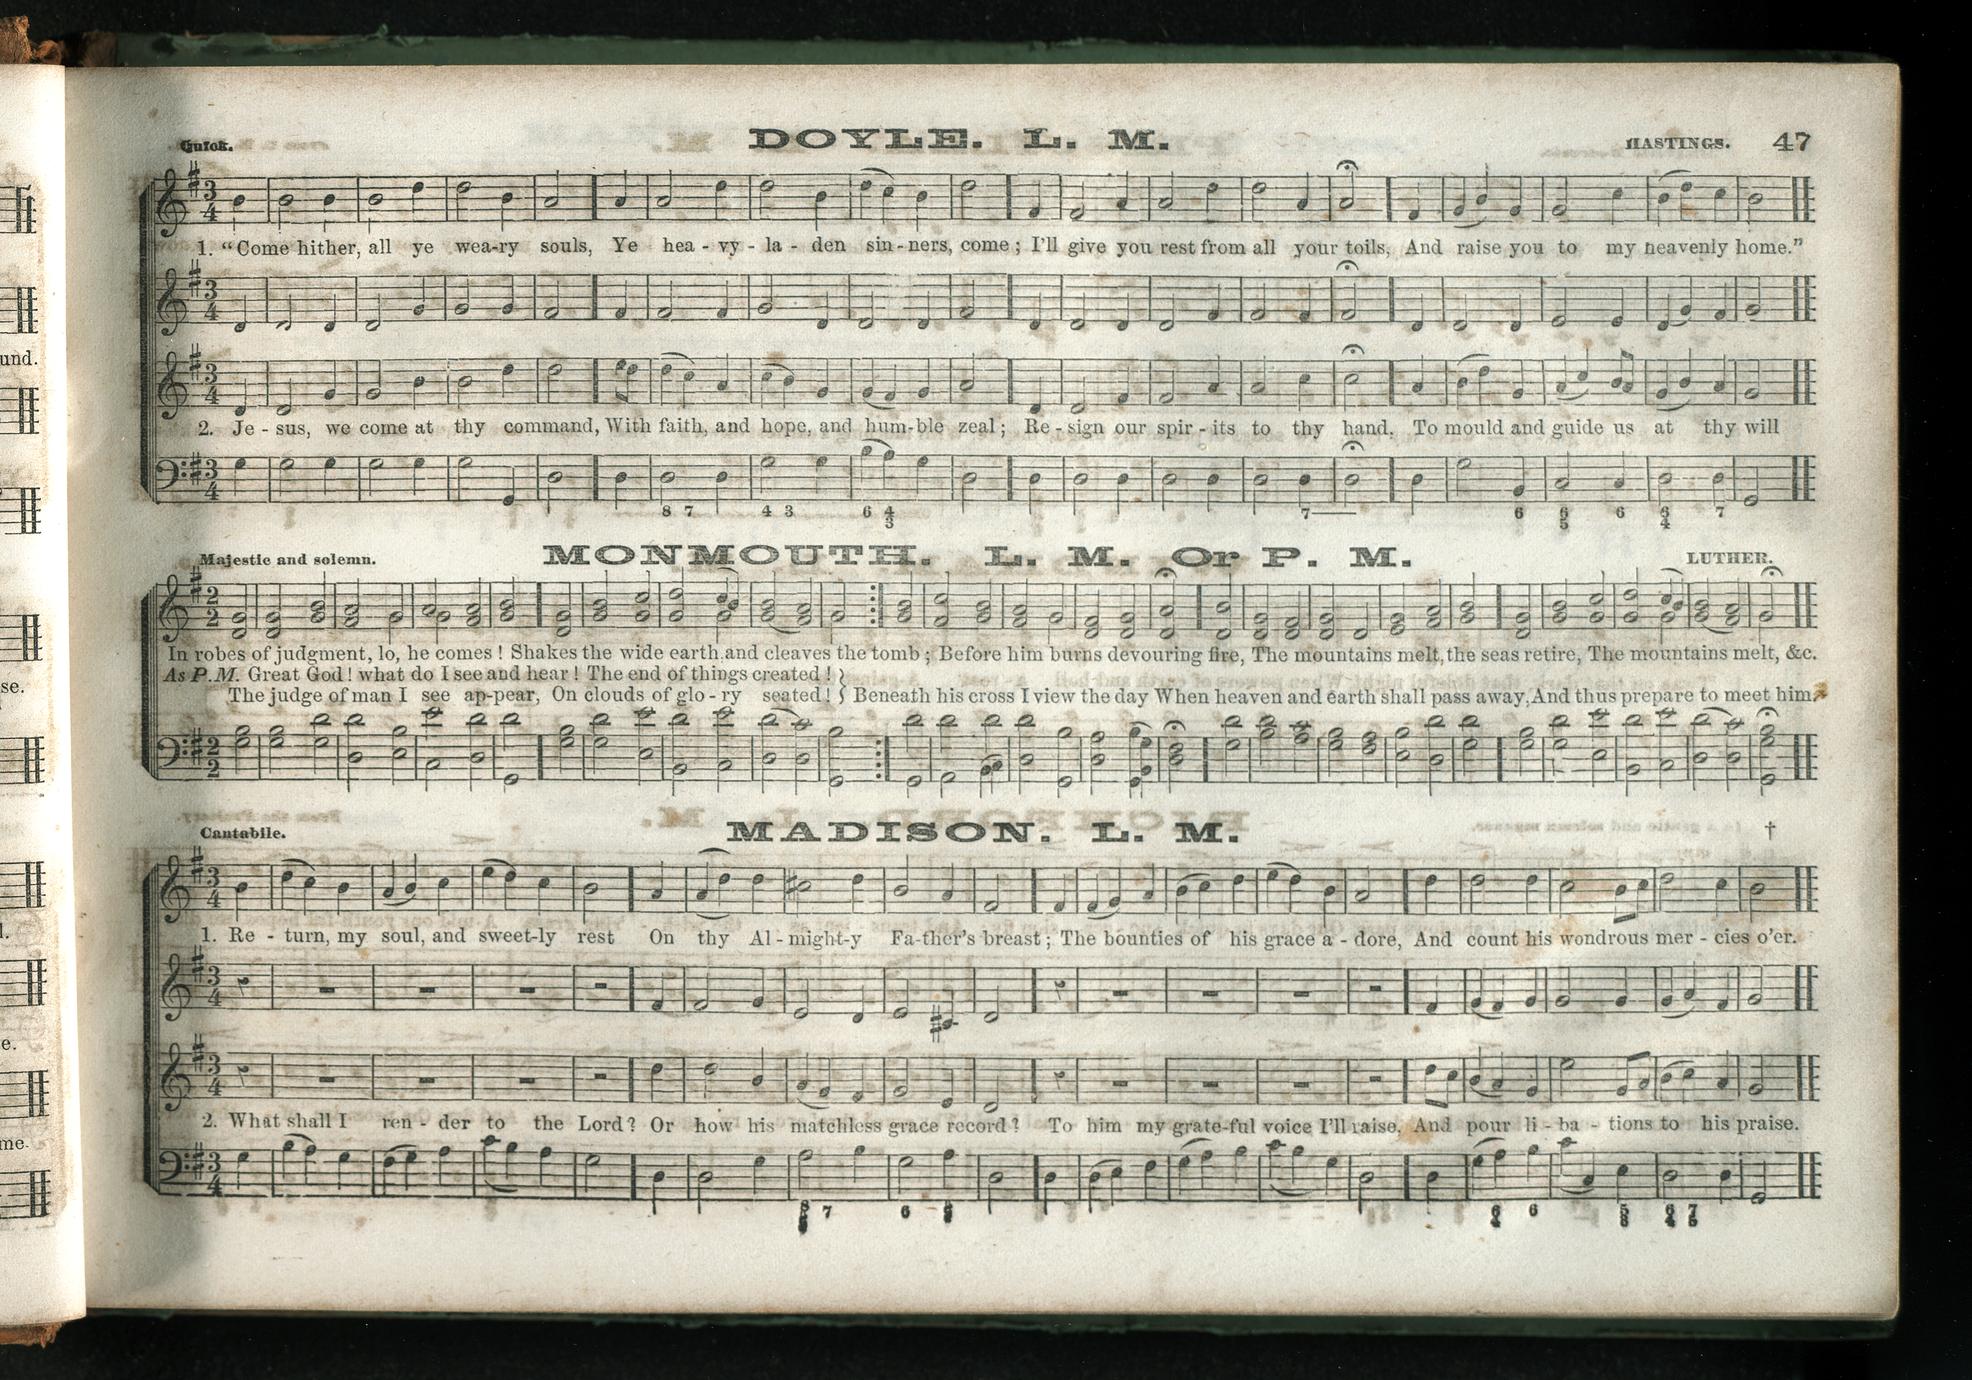 Quick. DOYLE. L. M. HASTINGS. 47
1. “Come hither, all ye wea-ry souls, Ye hea - vy - la - den sin - ners, come ; I’ll give you rest from all your toils, And raise you to my heavenly home.”
und.
2. Je - sus, we come at thy command, With faith, and hope, and hum-ble zeal ; Re - sign our spir - its to thy hand, To mould and guide us at thy will
8 7 4 3 6 4 3 7 6 6 5 6 6 4 7
Majestic and solemn. MONMOUTH. L. M. Or P. M. LUTHER.
In robes of judgment, lo, he comes ! Shakes the wide earth and cleaves the tomb ; Before him burns devouring fire, The mountains melt, the seas retire, The mountains melt, &c.
As P. M. Great God ! what do I see and hear ! The end of things created !
se.
The judge of man I see ap-pear, On clouds of glo - ry seated ! Beneath his cross I view the day When heaven and earth shall pass away, And thus prepare to meet him.
Cantabile. MADISON. L. M. †
1. Re - turn, my soul, and sweet-ly rest On thy Al - might-y Fa-ther’s breast ; The bounties of his grace a - dore, And count his wondrous mer - cies o’er.
l.
e.
2. What shall I ren - der to the Lord ? Or how his matchless grace record ? To him my grate-ful voice I’ll raise, And pour li - ba - tions to his praise.
me.
7 6 6